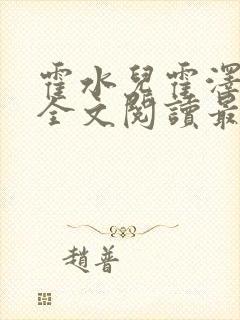 霍水兒霍澤
全文閱讀最
趙普